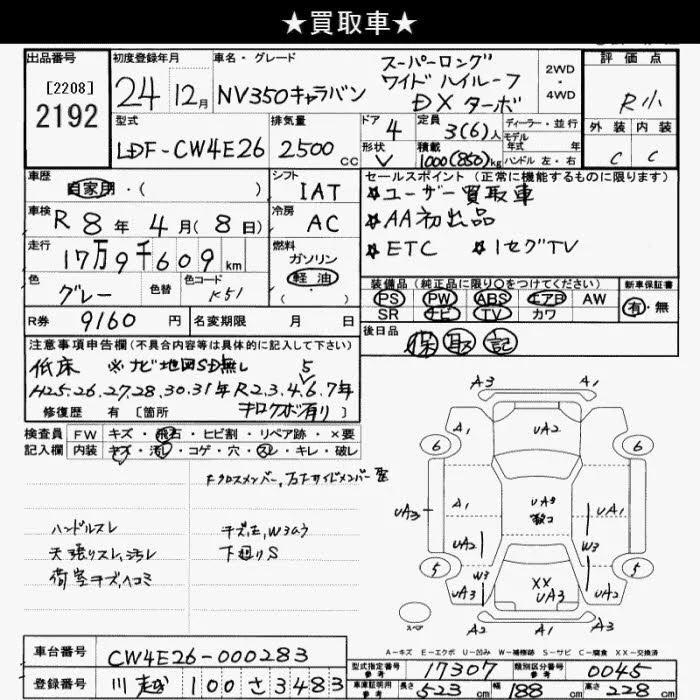 ★買取車★
出品番号
[2208]
2192
初度登録年月
24年 12月
車名・グレード
NV350キャラバン
スーパーロング
ワイド ハイルーフ
DX ターボ
2WD
・
4WD
評価点
R小
外装 内装
C C
型式
LDF-CW4E26
排気量
2500cc
ドア
4
形状
V
定員
3(6)人
積載
1000(850)kg
ディーラー・並行
モデル
年式 年
ハンドル 左・右
車歴
自家用・( )
シフト
IAT
車検
R 8年 4月( 8日)
冷房
AC
走行
17万9千609km
燃料
ガソリン
軽油
( )
色
グレー
色替
色コード
K51
R券 9160円
名変期限 月 日
セールスポイント(正常に機能するものに限ります)
☆ユーザー買取車
☆AA初出品
☆ETC ☆1セグTV
装備品(純正品に限り○をつけてください)
PS PW ABS エアB AW
SR ナビ TV カワ
新車保証書
有・無
後日品
保 取 記
注意事項申告欄(不具合内容等は具体的に記入して下さい)
低床 ※ナビ地図SD無し
H25.26.27.28.30.31年R2.3.4.5.6.7年
修復歴 有 [箇所
キロクボ有り
検査員
記入欄
FW キズ・飛石・ヒビ割・リペア跡・×要
内装 キズ・汚レ・コゲ・穴・スレ・キレ・破レ
ハンドルスレ
天張りスレ,汚レ
荷室キズ,ヘコミ
下廻りS
A3 A1
6 A1 UA2 6
UA3 A1 UA3 UA1
UA2 W3
5 W3 XX 5
UA3 UA3 UA2
スペア
A2 A1 A3
A-キズ E-エクボ U-凹み W-補修跡 S-サビ C-腐食 XX-交換済
車台番号 CW4E26-000283
登録番号 川越 100 さ 3483
型式指定番号
参考
17307
類別区分番号
参考
0045
車庫証明用
参考
長さ 523cm 幅 188cm 高さ 228cm